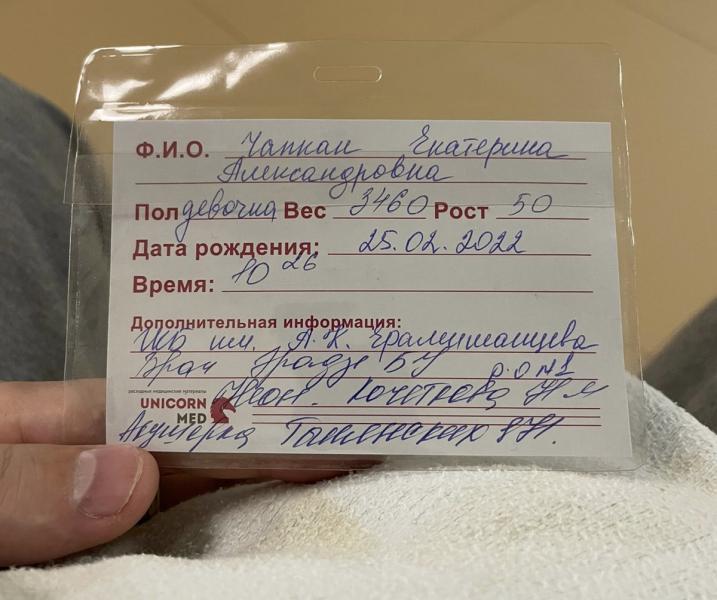 Ф.И.О. Чапкан Екатерина
Александровна
Пол девочка Вес 3460 Рост 50
Дата рождения: 25.02.2022
Время: 10 26
Дополнительная информация:
им. А.К. Ерамишанцева
Врач
Р.О №1
расходные медицинские материалы
UNICORN
MED
Неон. Кочеткова
Акушерка